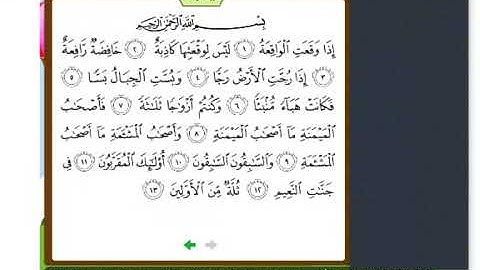 بِسْمِ ٱللَّهِ ٱلرَّحْمَٰنِ ٱلرَّحِيمِ
إِذَا وَقَعَتِ ٱلْوَاقِعَةُ ١ لَيْسَ لِوَقْعَتِهَا كَاذِبَةٌ ٢ خَافِضَةٌ رَّافِعَةٌ
٣ إِذَا رُجَّتِ ٱلْأَرْضُ رَجًّا ٤ وَبُسَّتِ ٱلْجِبَالُ بَسًّا ٥
فَكَانَتْ هَبَآءً مُّنۢبَثًّا ٦ وَكُنتُمْ أَزْوَٰجًا ثَلَٰثَةً ٧ فَأَصْحَٰبُ
ٱلْمَيْمَنَةِ مَآ أَصْحَٰبُ ٱلْمَيْمَنَةِ ٨ وَأَصْحَٰبُ ٱلْمَشْـَٔمَةِ مَآ أَصْحَٰبُ
ٱلْمَشْـَٔمَةِ ٩ وَٱلسَّٰبِقُونَ ٱلسَّٰبِقُونَ ١٠ أُو۟لَٰٓئِكَ ٱلْمُقَرَّبُونَ ١١ فِى
جَنَّٰتِ ٱلنَّعِيمِ ١٢ ثُلَّةٌ مِّنَ ٱلْأَوَّلِينَ ١٣